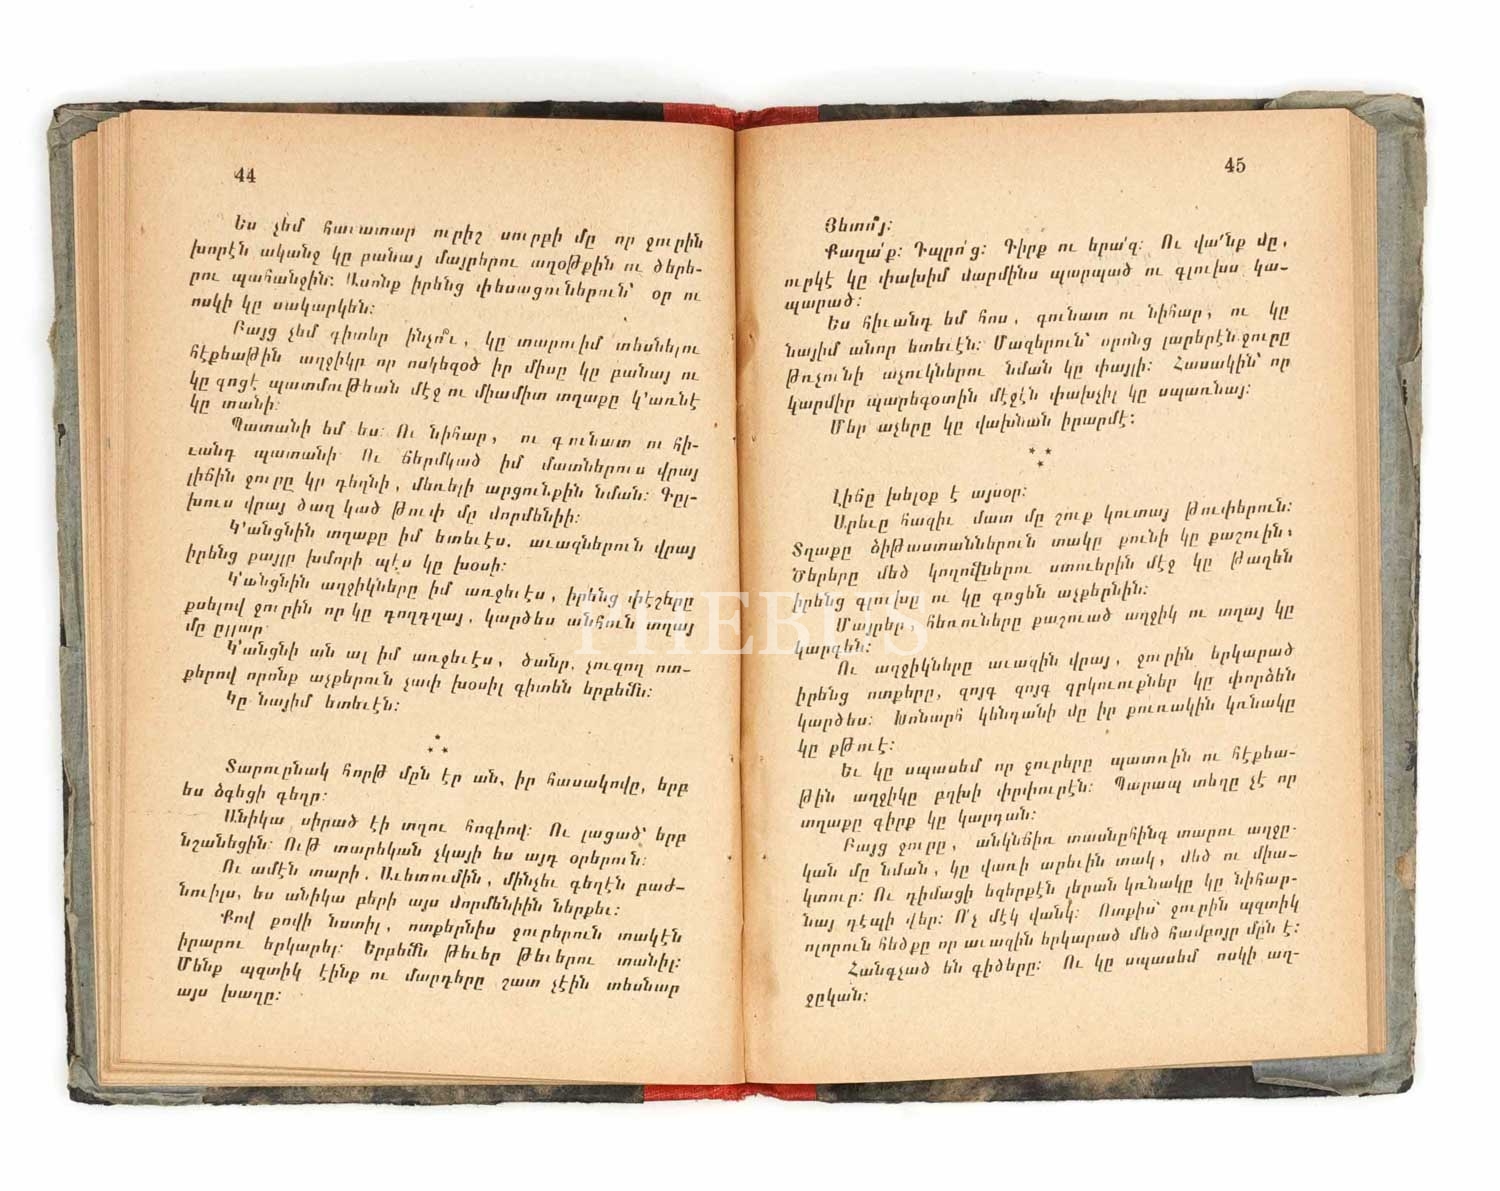 44
Ես չեմ հաւատար ուրիշ սուրբի մը որ ջուրին
խորէն ականջ կը բանայ մայրերու աղօթքին ու ծերե-
րու պահանջին։ Ասոնք իրենց փեսացուներուն՝ օր ու
ոսկի կը սակարկեն։
Բայց չեմ գիտեր ինչո՞ւ, կը տարուիմ տեսնելու
հէքեաթին աղջիկը որ ոսկեզօծ իր միսը կը բանայ ու
կը գոցէ պատմութեան մէջ ու միամիտ տղաքը կ՚առնէ
կը տանի։
Պատանի եմ ես։ Ու նիհար, ու գունատ ու հի-
ւանդ պատանի։ Ու ճերմկած իմ մատներուս վրայ
լիճին ջուրը կը դեղնի, մեռելի արցունքին նման։ Գըլ-
խուս վրայ ծաղկած թուփ մը մորմենիի։
Կ՚անցնին տղաքը իմ ետեւէս. աւազներուն վրայ
իրենց քայլը խմորի պէս կը խօսի։
Կ՚անցնին աղջիկները իմ առջեւէս, իրենց փէշերը
քսելով ջուրին որ կը դողդղայ, կարծես անհուն տղայ
մը ըլլար։
Կ՚անցնի ան ալ իմ առջեւէս, ծանր, չուզող ոտ-
քերով որոնք աչքերուն չափ խօսիլ գիտեն երբեմն։
Կը նայիմ ետեւէն։
⁂
Տարուընակ հորթ մըն էր ան, իր հասակովը, երբ
ես ձգեցի գեղը։
Անիկա սիրած էի տղու հոգիով։ Ու լացած՝ երբ
նշանեցին։ Ութ տարեկան չկայի ես այդ օրերուն։
Ու ամէն տարի. Աւետումին, մինչեւ գեղէն բաժ-
նուիլս, ես անիկա բերի այս մորմենիին ներքեւ։
Քով քովի նստիլ, ոտքերնիս ջուրերուն տակէն
իրարու երկարել։ Երբեմն թեւեր թեւերու տանիլ։
Մենք պզտիկ էինք ու մարդերը շատ չէին տեսնար
այս խաղը։
45
Յետո՞յ։
Քաղա՛ք։ Դպրո՛ց։ Գիրք ու երա՛զ։ Ու վա՛նք մը,
ուրկէ կը փախիմ մարմինս պարպած ու գլուխս կա-
պարած։
Ես հիւանդ եմ հոս, գունատ ու նիհար, ու կը
նայիմ անոր ետեւէն։ Մազերուն՝ որոնց լարերէն ջուրը
թռչունի աչուկներու նման կը փայլի։ Հասակին՝ որ
կարմիր պարեգօտին մէջէն փախչիլ կը սպառնայ։
Մեր աչերը կը վախնան իրարմէ։
* *
*
Լիճը խելօք է այսօր։
Արեւը հազիւ մատ մը շուք կուտայ թուփերուն։
Տղաքը ձիթաստաններուն տակը քունի կը քաշուին,
Ծերերը մեծ կողովներու ստուերին մէջ կը թաղեն
իրենց գլուխը ու կը գոցեն աչքերնին։
Մայրեր, հեռուները քաշուած աղջիկ ու տղայ կը
կարգեն։
Ու աղջիկները աւազին վրայ, ջուրին երկարած
իրենց ոտքերը, զոյգ զոյգ զրկուուքներ կը փորձեն
կարծես։ Խոնարհ կենդանի մը իր քուռակին կռնակը
կը քթուէ։
Եւ կը սպասեմ որ ջուրերը պատռին ու հէքեա-
թին աղջիկը բղխի փրփուրէն։ Պարապ տեղը չէ որ
տղաքը գիրք կը կարդան։
Բայց ջուրը, անկնճիռ տասնըհինգ տարու աղջը-
կան մը նման, կը վառի արեւին տակ, մեծ ու միա-
կտուր։ Ու դիմացի եզերքէն լերան կռնակը կը նիհար-
նայ դէպի վեր։ Ո՛չ մէկ վանկ։ Ոտքիս՝ ջուրին պզտիկ
ոլորուն հեծքը որ աւազին երկարած մեծ համբոյր մըն է։
Հանգչած են գիծերը։ Ու կը սպասեմ ոսկի աղ-
ջըկան։
PHEBUS